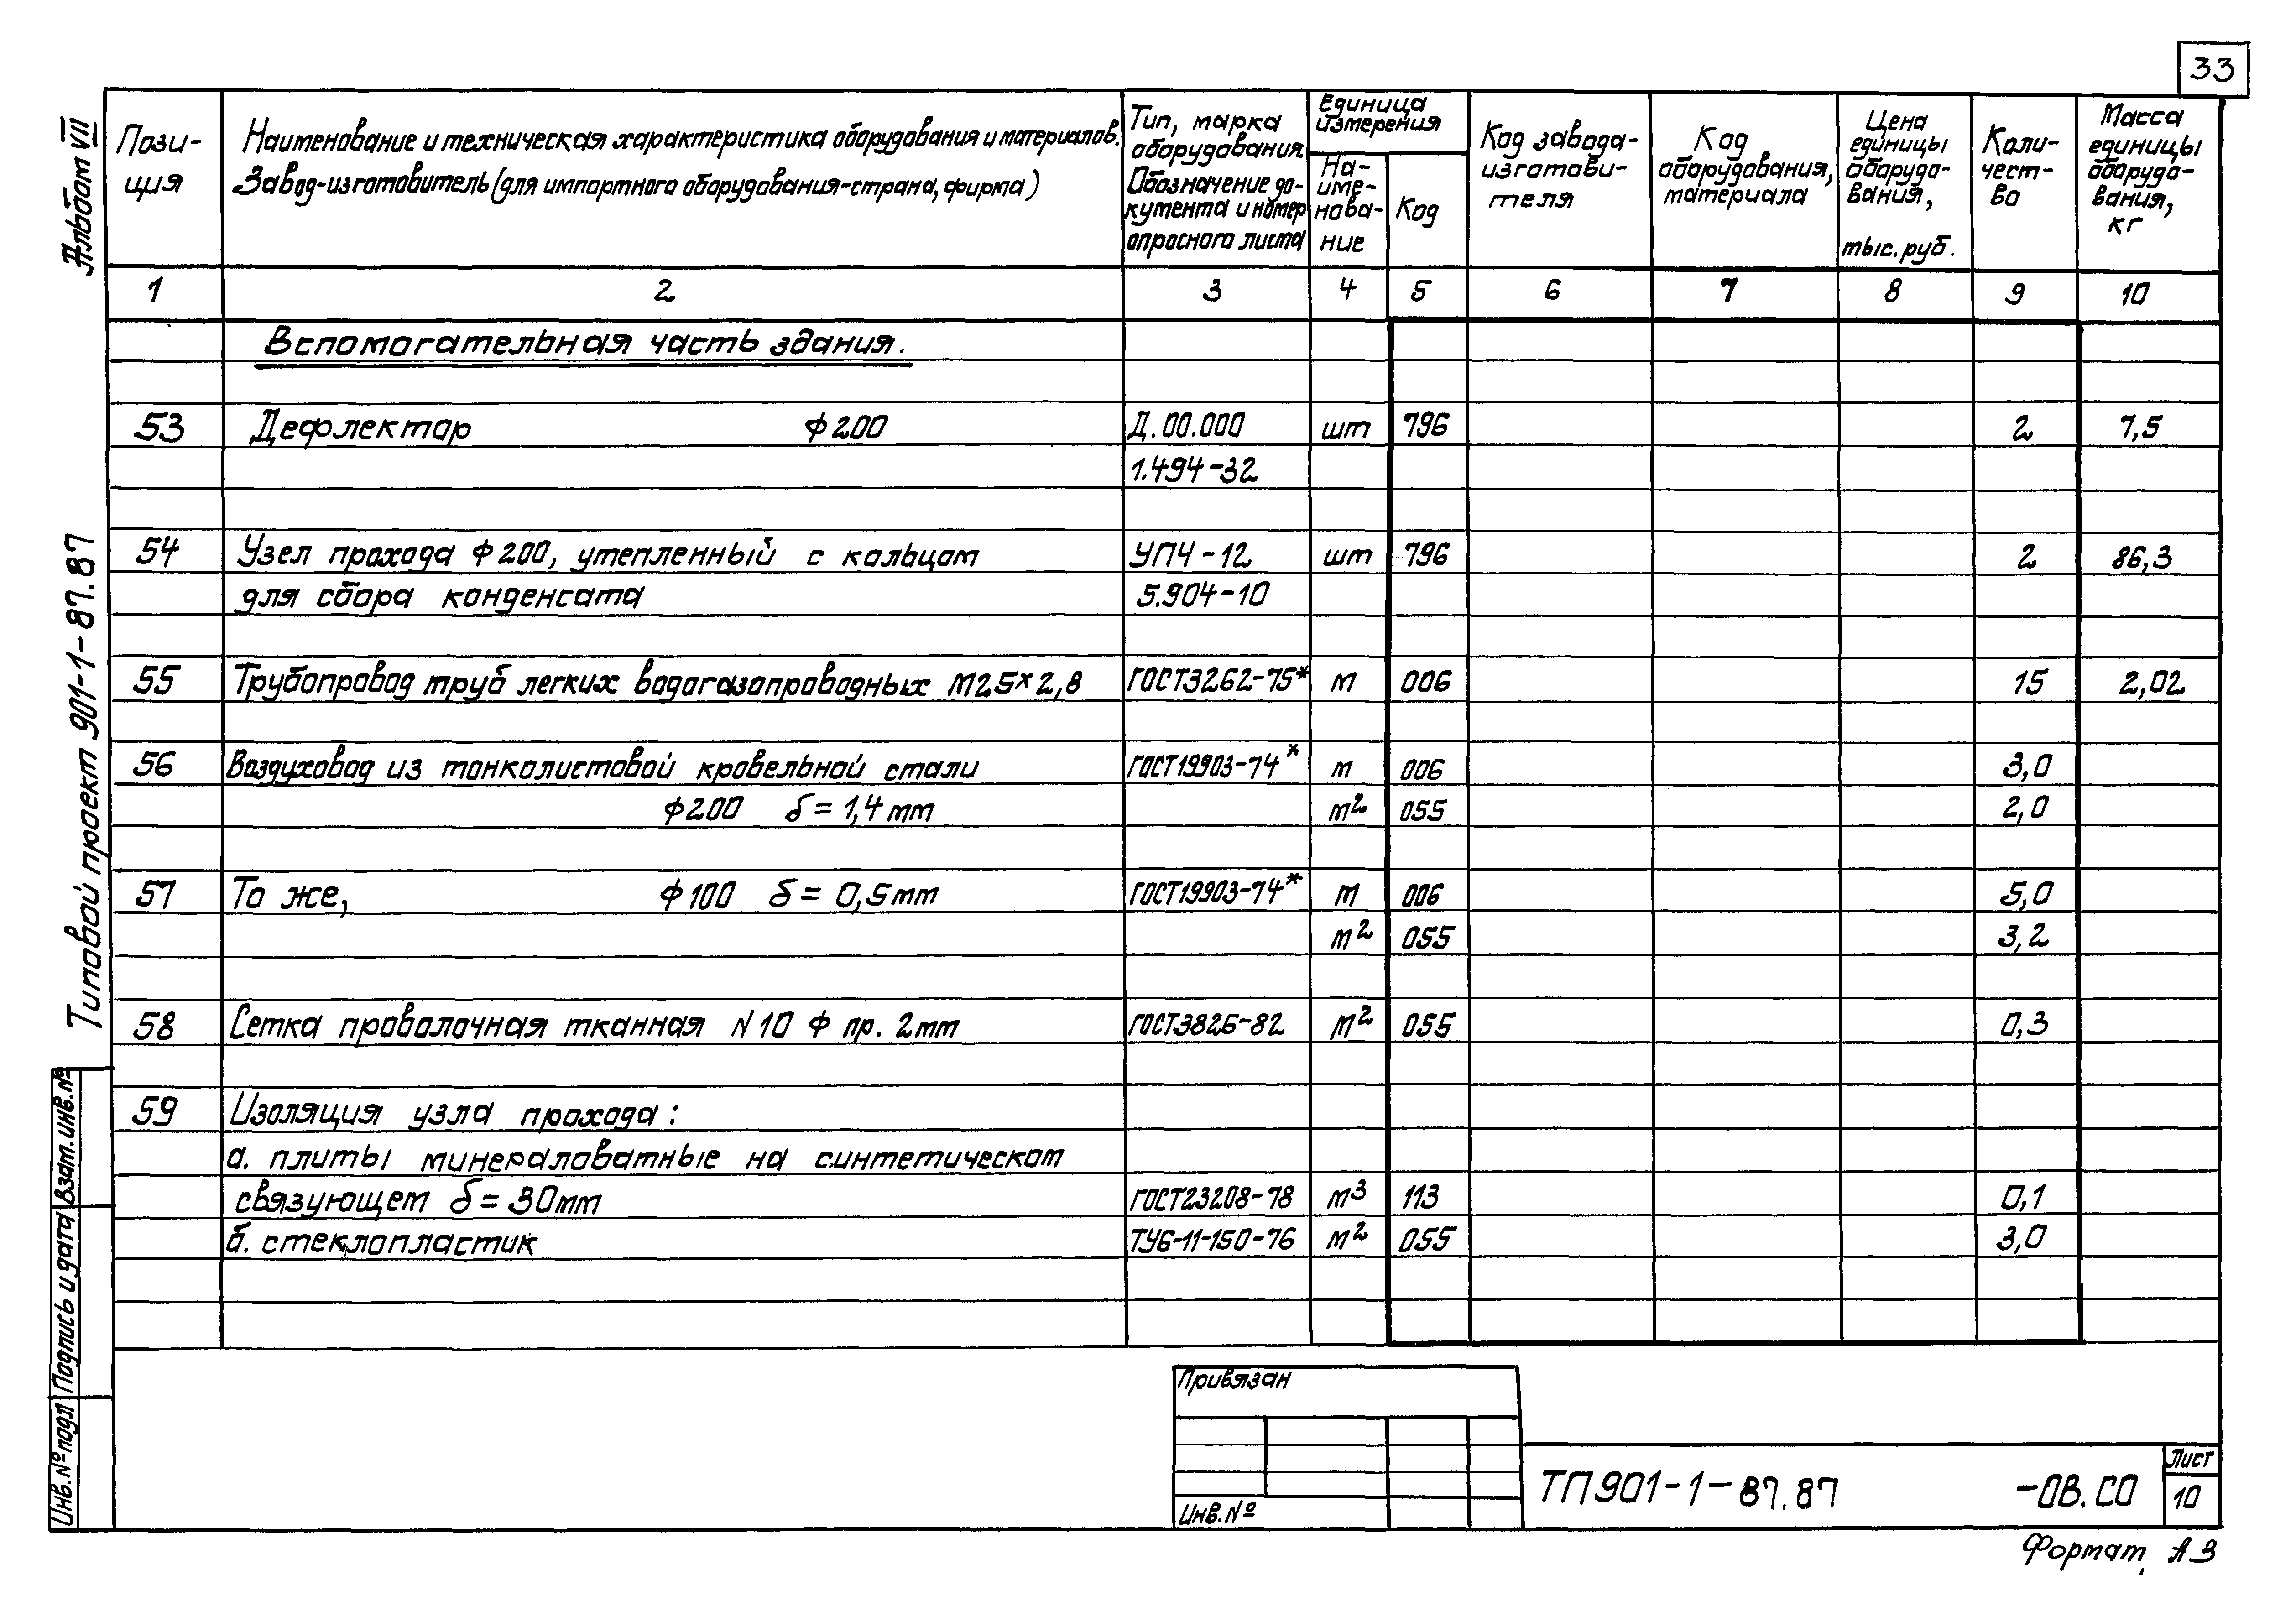 33
Альбом VII
Типовой проект 901-1-87.87
Взам.инв.№
Подпись и дата
Инв.№ подл
Пози-
ция
Наименование и техническая характеристика оборудования и материалов.
Завод-изготовитель (для импортного оборудования-страна, фирма)
Тип, марка
оборудования.
Обозначение до-
кумента и номер
опросного листа
Единица
измерения
На-
име-
нова-
ние
Код
Код завода-
изготови-
теля
Код
оборудования,
материала
Цена
единицы
оборудо-
вания,
тыс. руб.
Коли-
чест-
во
Масса
единицы
оборудо-
вания,
кг
1 2 3 4 5 6 7 8 9 10
Вспомогательная часть здания.
53 Дефлектор ф200 Д.00.000 шт 796 2 7,5
1.494-32
54 Узел прохода ф200, утепленный с кольцом УП4-12 шт 796 2 86,3
для сбора конденсата 5.904-10
55 Трубопровод труб легких водогазопроводных М25×2,8 ГОСТ3262-75* м 006 15 2,02
56 Воздуховод из тонколистовой кровельной стали ГОСТ19903-74* м 006 3,0
ф200 δ=1,4мм м² 055 2,0
57 То же, ф100 δ=0,5мм ГОСТ19903-74* м 006 5,0
м² 055 3,2
58 Сетка проволочная тканная N10 ф пр. 2мм ГОСТ3826-82 м² 055 0,3
59 Изоляция узла прохода:
а. плиты минераловатные на синтетическом
связующем δ=30мм ГОСТ23208-78 м³ 113 0,1
б. стеклопластик ТУ6-11-150-76 м² 055 3,0
Привязан
Инв.№
ТП901-1-87.87 -ОВ.СО
Лист
10
Формат А3